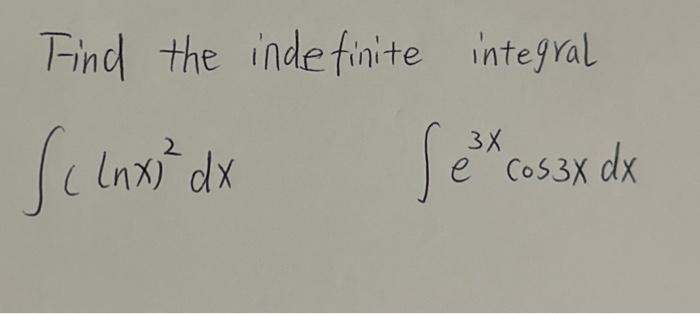 Find the indefinite integral
∫(lnx)² dx ∫e³ˣ cos3x dx